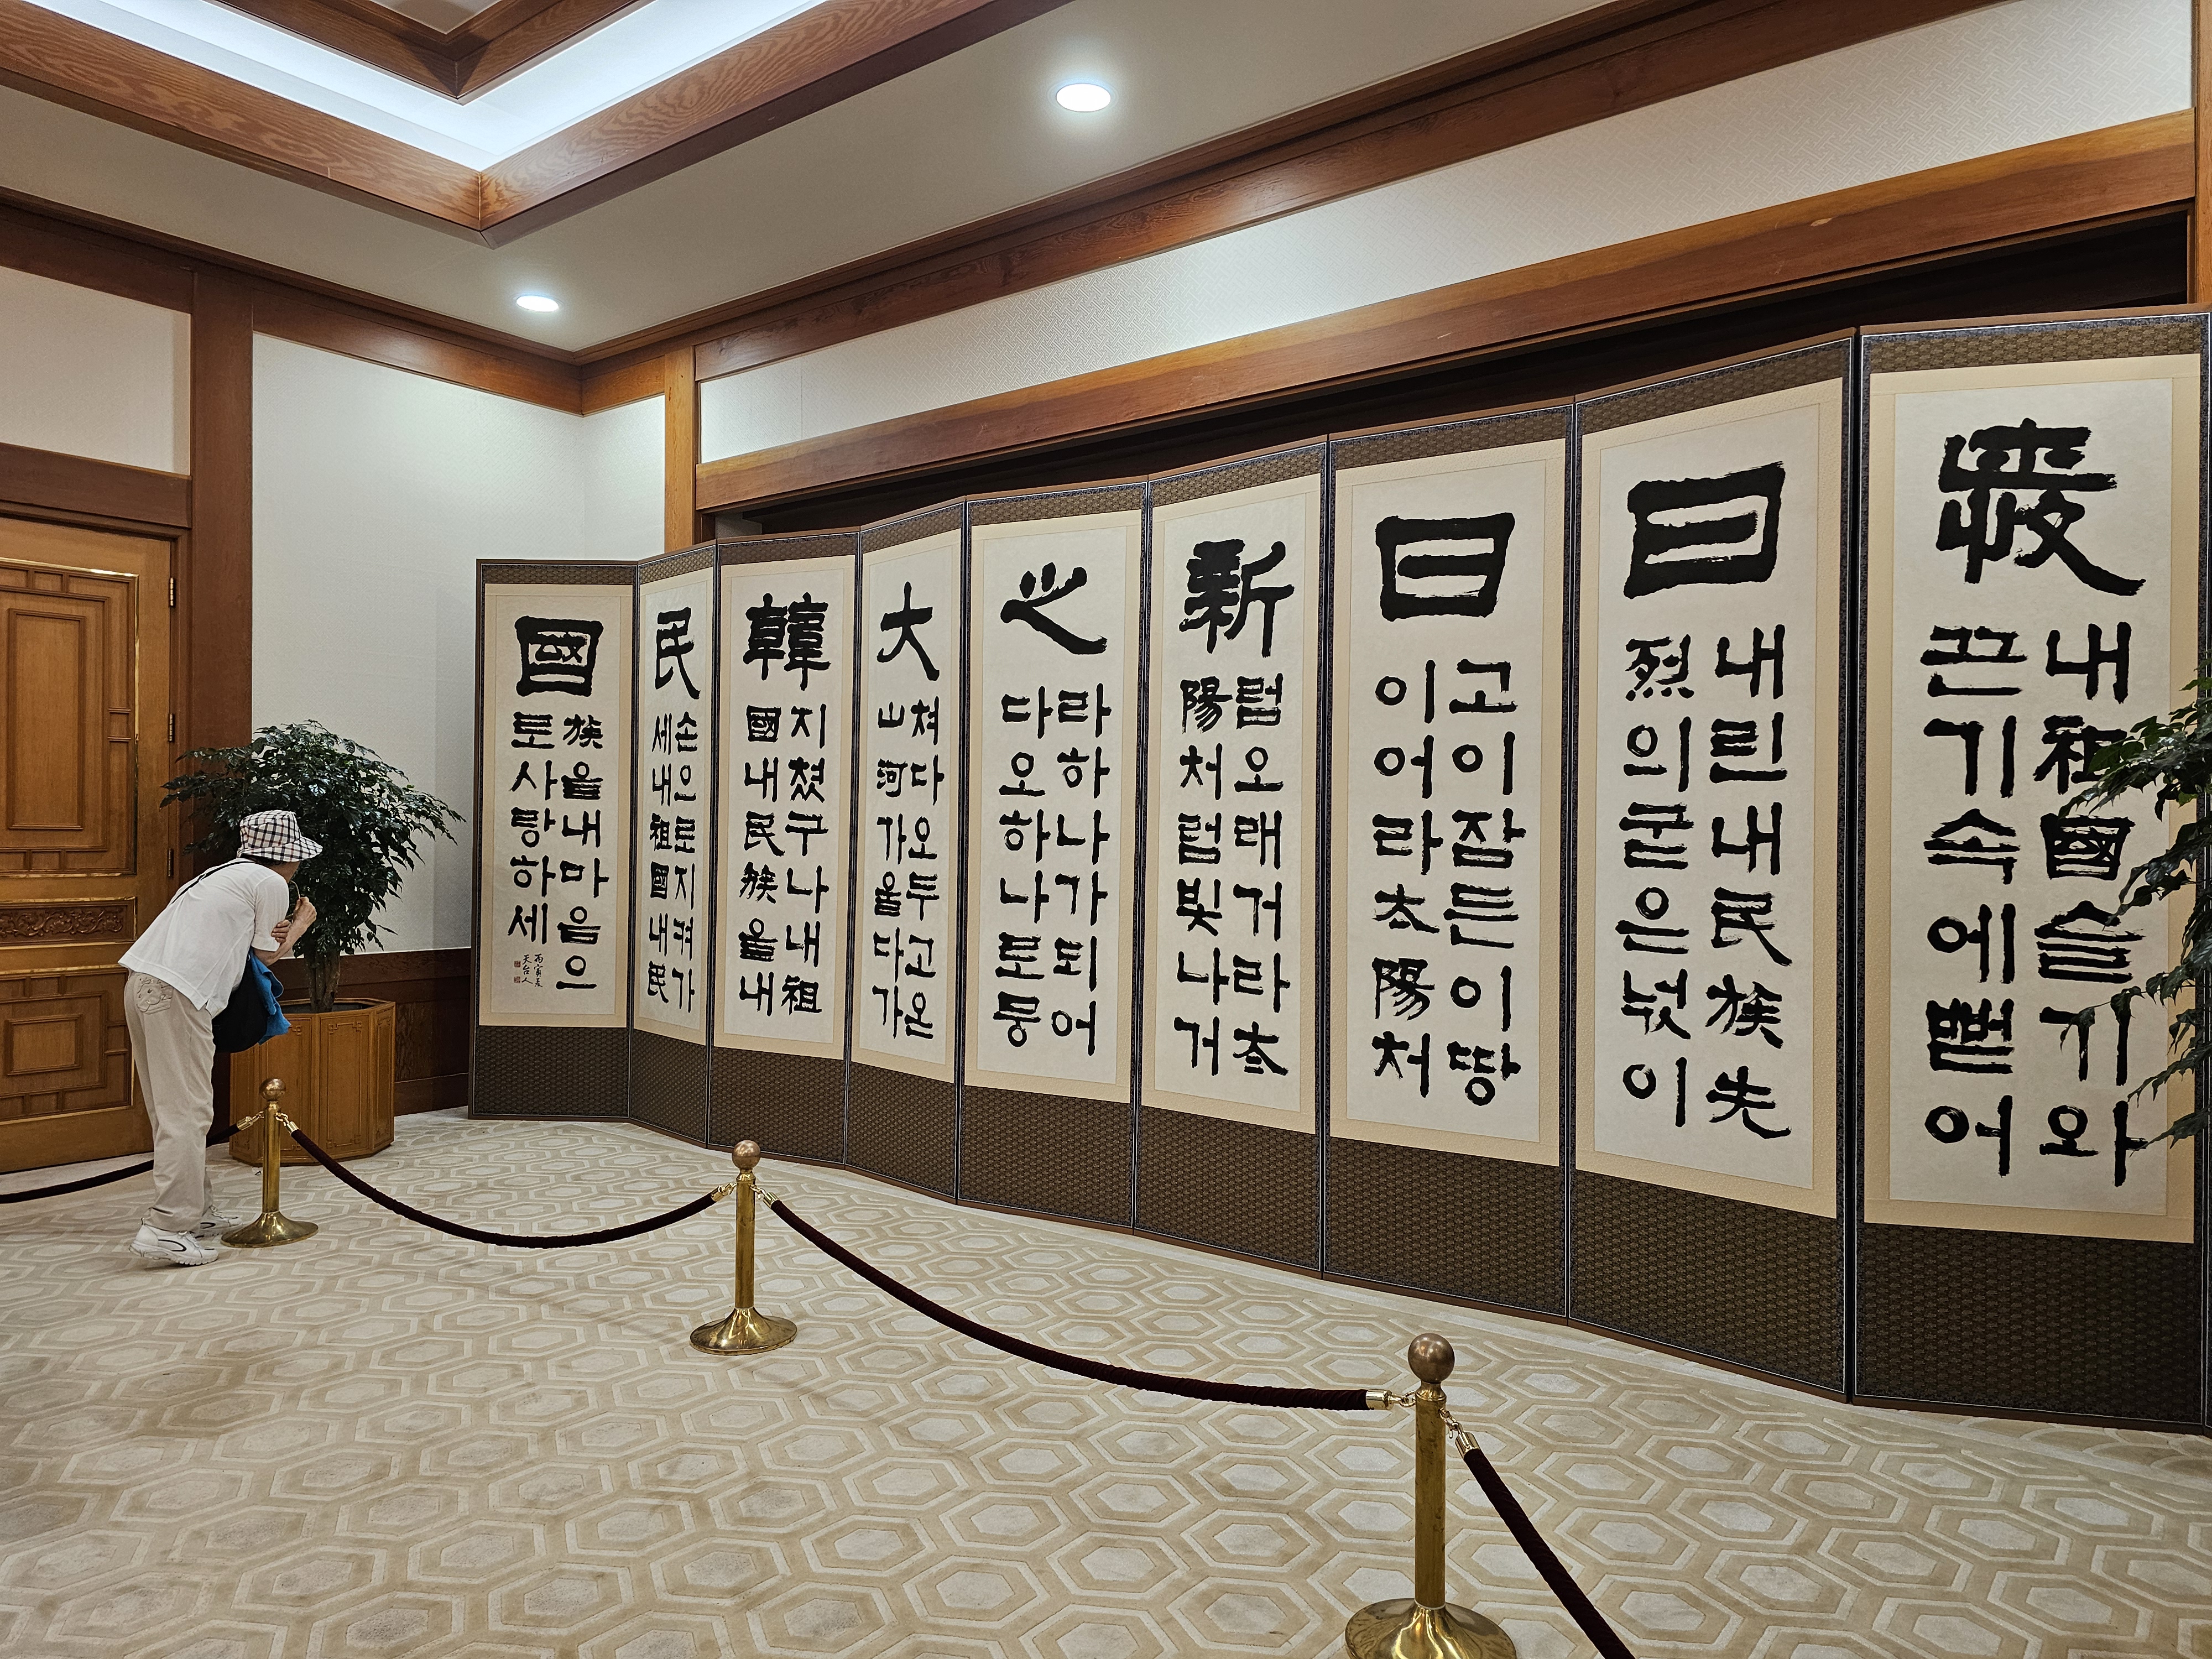 내祖國슬기와
끈기속에뻗어
日
내린내民族先
烈의굳은넋이
日
고이잠든이땅
이어라太陽처
新
럼오래거라太
陽처럼빛나거
之
라하나가되어
다오하나로뭉
大
쳐다오두고온
山河가울다가
韓
지쳤구나내祖
國내民族을내
民
손으로지켜가
세내祖國내民
國
族을내마음으
로사랑하세
丙寅夏
天台人